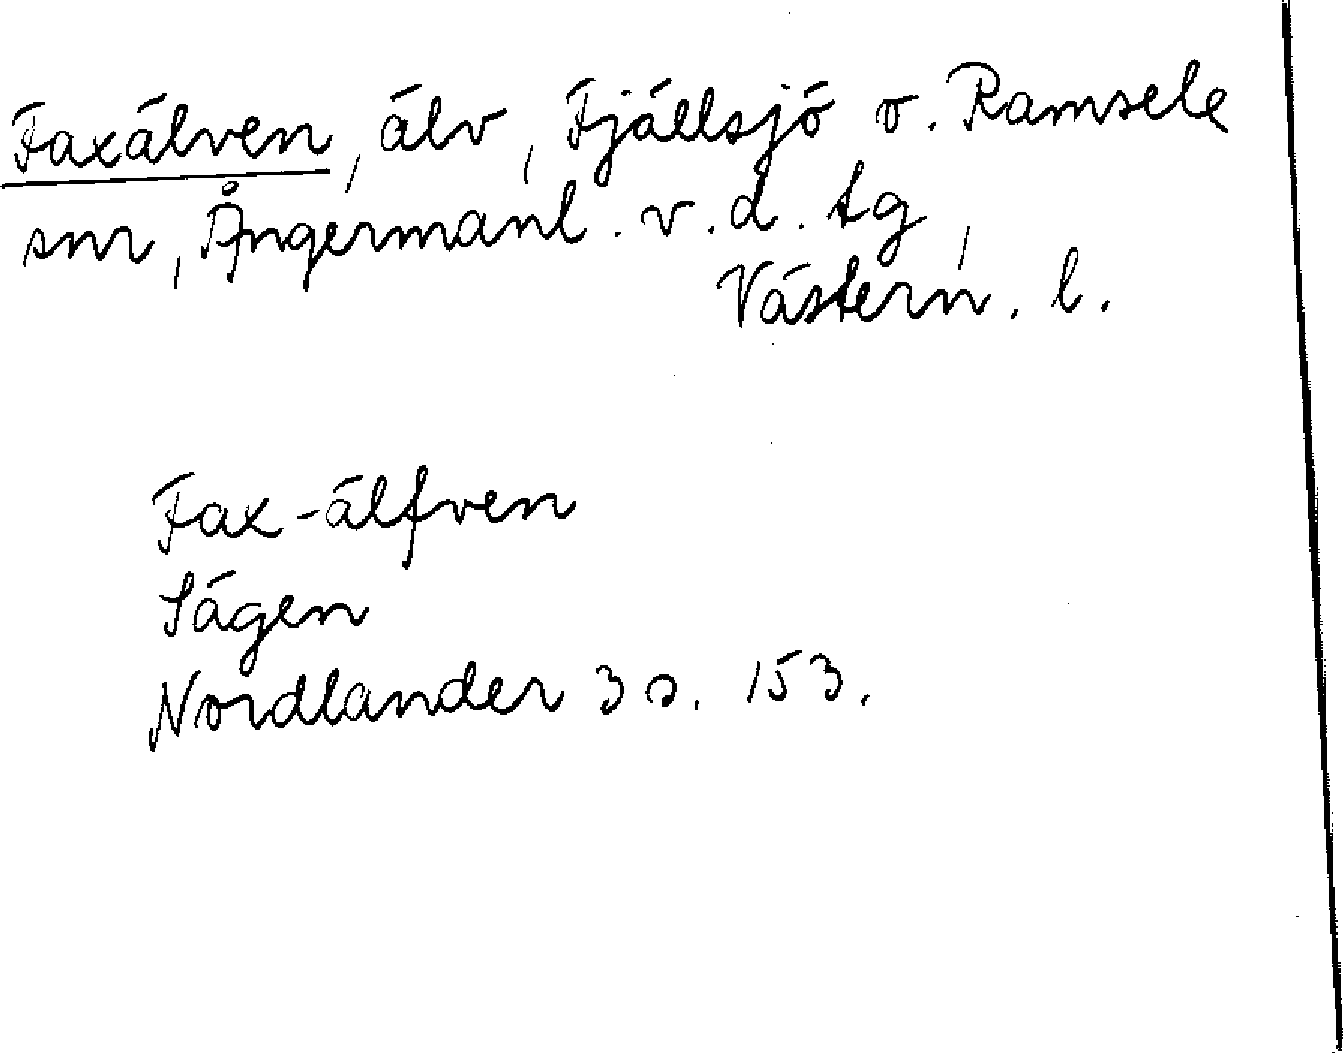 Faxälven, älv, Fjällsjö o. Ramsele
snr, Ångermanl. v. d. tg,
Västern. l.
Fax-älfven
Sägen
Nordlander 3 s. 153.